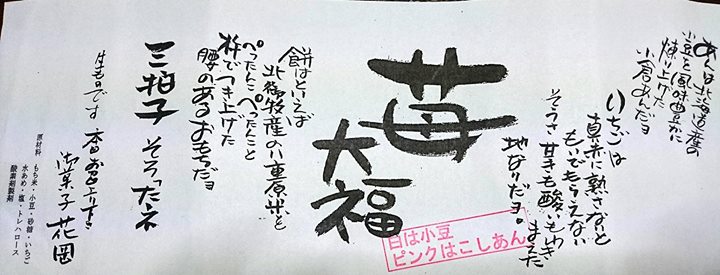 あんは北海道産の
小豆を風味豊かに
煉り上げた
小倉あんだヨ
いちごは
真赤に熟さないと
もいでもらえない
そうさ 甘さも酸いもわきまえた
地なりだヨ。
苺
大福
白は小豆
ピンクはこしあん
餅はといえば
北御牧産の八重原米と
ぺったんこ ぺったんこと
杵でつき上げた
腰のあるおもちだヨ
三拍子 そろったネ
生ものです 本日お召上り下さい
御菓子 花岡
原材料 もち米・小豆・砂糖・いちご
水あめ・塩・トレハロース